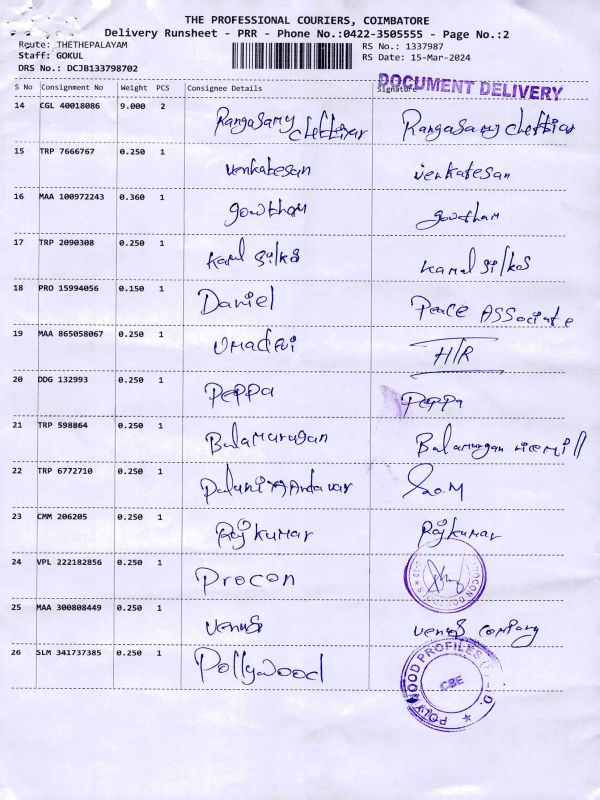 THE PROFESSIONAL COURIERS, COIMBATORE
Delivery Runsheet - PRR - Phone No.:0422-3505555 - Page No.:2
Route: THETHEPALAYAM RS No.: 1337987
Staff: GOKUL RS Date: 15-Mar-2024
DRS No.: DCJB133798702
DOCUMENT DELIVERY
S No Consignment No Weight PCS Consignee Details Signature
14 CGL 40018086 9.000 2 Rangasamy chettiyar Rangasamy chettiar
15 TRP 7666767 0.250 1 Venkatesan Venkatesan
16 MAA 100972243 0.360 1 gowtham gowtham
17 TRP 2090308 0.250 1 Kamal silks
18 PRO 15994056 0.150 1 Daniel Peace Associate
19 MAA 865058067 0.250 1 Umadevi H/R
20 DDG 132993 0.250 1 Peppa Peppa
21 TRP 598864 0.250 1 Balamurugan Balamurgan ricemill
22 TRP 6772710 0.250 1
23 CMM 206205 0.250 1 Rajkumar Rajkumar
24 VPL 222182856 0.250 1 Procon
25 MAA 300808449 0.250 1 Venus Venus company
26 SLM 341737385 0.250 1 Pollywood
CBE